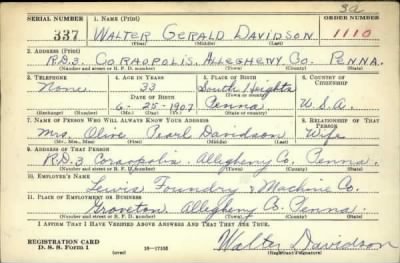 3a
SERIAL NUMBER 1. NAME (Print) ORDER NUMBER
337 WALTER GERALD DAVIDSON 1110
(First) (Middle) (Last)
2. ADDRESS (Print)
R.D.3. CORAOPOLIS. ALLEGHENY CO. PENNA.
(Number and street or R. F. D. number) (Town) (County) (State)
3. TELEPHONE 4. AGE IN YEARS 5. PLACE OF BIRTH 6. COUNTRY OF CITIZENSHIP
None 33 South Heights
DATE OF BIRTH (Town or county)
6-25-1907 Penna U.S.A.
(Exchange) (Number) (Mo.) (Day) (Yr.) (State or country)
7. NAME OF PERSON WHO WILL ALWAYS KNOW YOUR ADDRESS 8. RELATIONSHIP OF THAT PERSON
Mrs. Olive Pearl Davidson Wife
(Mr., Mrs., Miss) (First) (Middle) (Last)
9. ADDRESS OF THAT PERSON
R.D.3 Coraopolis. Allegheny Co. Penna.
(Number and street or R. F. D. number) (Town) (County) (State)
10. EMPLOYER'S NAME
Lewis Foundry & Machine Co.
11. PLACE OF EMPLOYMENT OR BUSINESS
Groveton. Allegheny Co. Penna.
(Number and street or R. F. D. number) (Town) (County) (State)
I AFFIRM THAT I HAVE VERIFIED ABOVE ANSWERS AND THAT THEY ARE TRUE.
REGISTRATION CARD
D. S. S. Form 1 (over) 16-17105 Walter Davidson
(Registrant's signature)